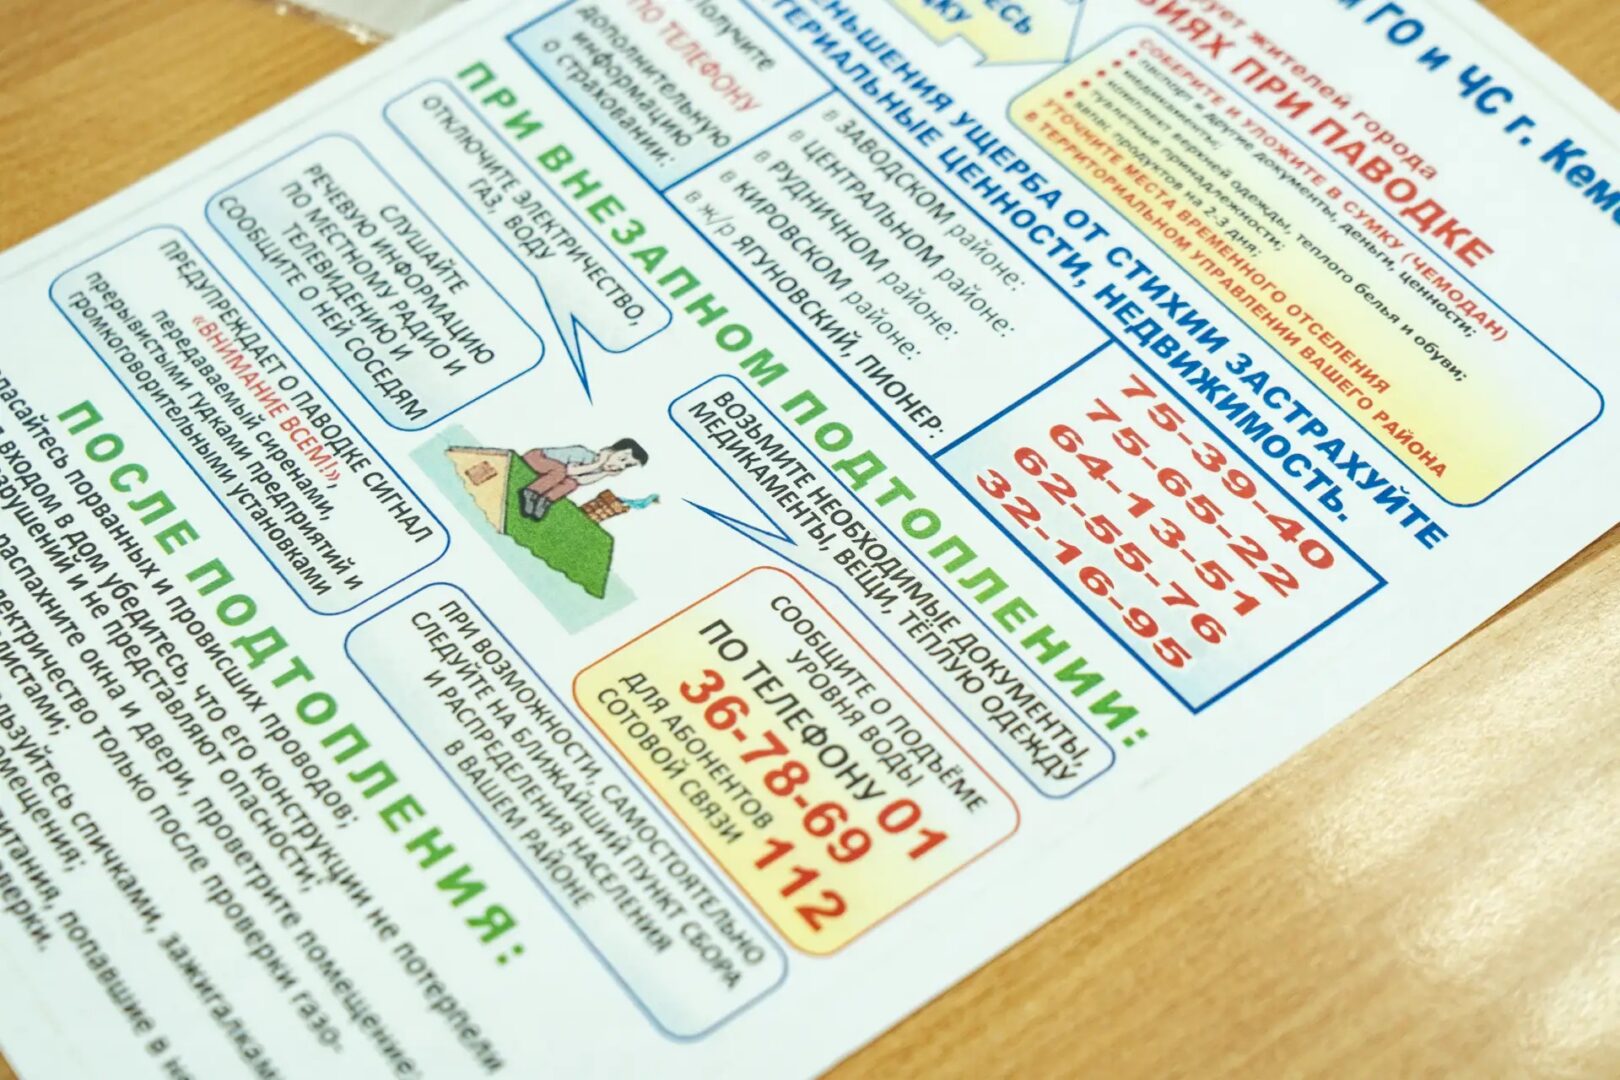 ГО и ЧС г.
жителей города
ПРИ ПАВОДКЕ
СОБЕРИТЕ И УЛОЖИТЕ В СУМКУ (ЧЕМОДАН)
• паспорт и другие документы, деньги, ценности;
• медикаменты;
• комплект верхней одежды, теплого белья и обуви;
• туалетные принадлежности;
• запас продуктов на 2-3 дня;
УТОЧНИТЕ МЕСТА ВРЕМЕННОГО ОТСЕЛЕНИЯ
В ТЕРРИТОРИАЛЬНОМ УПРАВЛЕНИИ ВАШЕГО РАЙОНА
УЩЕРБА ОТ СТИХИИ ЗАСТРАХУЙТЕ
ЦЕННОСТИ, НЕДВИЖИМОСТЬ.
Получите
ПО ТЕЛЕФОНУ
дополнительную
информацию
о страховании:
в ЗАВОДСКОМ районе:
в ЦЕНТРАЛЬНОМ районе:
в РУДНИЧНОМ районе:
в КИРОВСКОМ районе:
в ж/р ЯГУНОВСКИЙ, ПИОНЕР:
75-39-40
75-65-22
64-13-51
62-55-76
32-16-95
ПРИ ВНЕЗАПНОМ ПОДТОПЛЕНИИ:
ОТКЛЮЧИТЕ ЭЛЕКТРИЧЕСТВО,
ГАЗ, ВОДУ
СЛУШАЙТЕ
РЕЧЕВУЮ ИНФОРМАЦИЮ
ПО МЕСТНОМУ РАДИО И
ТЕЛЕВИДЕНИЮ И
СООБЩИТЕ О НЕЙ СОСЕДЯМ
ПРЕДУПРЕЖДАЕТ О ПАВОДКЕ СИГНАЛ
«ВНИМАНИЕ ВСЕМ!»,
передаваемый сиренами,
прерывистыми гудками предприятий и
громкоговорительными установками
ВОЗЬМИТЕ НЕОБХОДИМЫЕ ДОКУМЕНТЫ,
МЕДИКАМЕНТЫ, ВЕЩИ, ТЁПЛУЮ ОДЕЖДУ
СООБЩИТЕ О ПОДЪЁМЕ
УРОВНЯ ВОДЫ
ПО ТЕЛЕФОНУ 01
36-78-69
ДЛЯ АБОНЕНТОВ
СОТОВОЙ СВЯЗИ 112
ПРИ ВОЗМОЖНОСТИ, САМОСТОЯТЕЛЬНО
СЛЕДУЙТЕ НА БЛИЖАЙШИЙ ПУНКТ СБОРА
И РАСПРЕДЕЛЕНИЯ НАСЕЛЕНИЯ
В ВАШЕМ РАЙОНЕ
ПОСЛЕ ПОДТОПЛЕНИЯ:
порванных и провисших проводов;
входом в дом убедитесь, что его конструкции не потерпели
и не представляют опасности;
распахните окна и двери, проветрите помещение;
только после проверки газо-
спичками, зажигалками
попавшие в